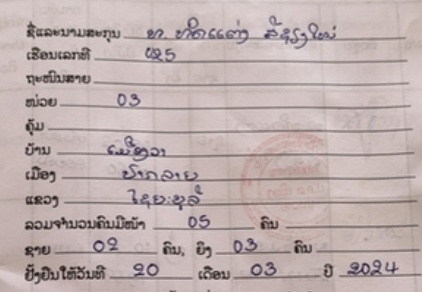 ຊື່ແລະນາມສະກຸນ ທ.
ເຮືອນເລກທີ 025
ຖະໜົນສາຍ
ໜ່ວຍ 03
ຄຸ້ມ
ບ້ານ ເມືອງວາ
ເມືອງ ປາກລາຍ
ແຂວງ ໄຊຍະບູລີ
ລວມຈຳນວນຄົນມີໜ້າ 05 ຄົນ
ຊາຍ 02 ຄົນ, ຍິງ 03 ຄົນ
ຢັ້ງຢືນໃຫ້ວັນທີ 20 ເດືອນ 03 ປີ 2024